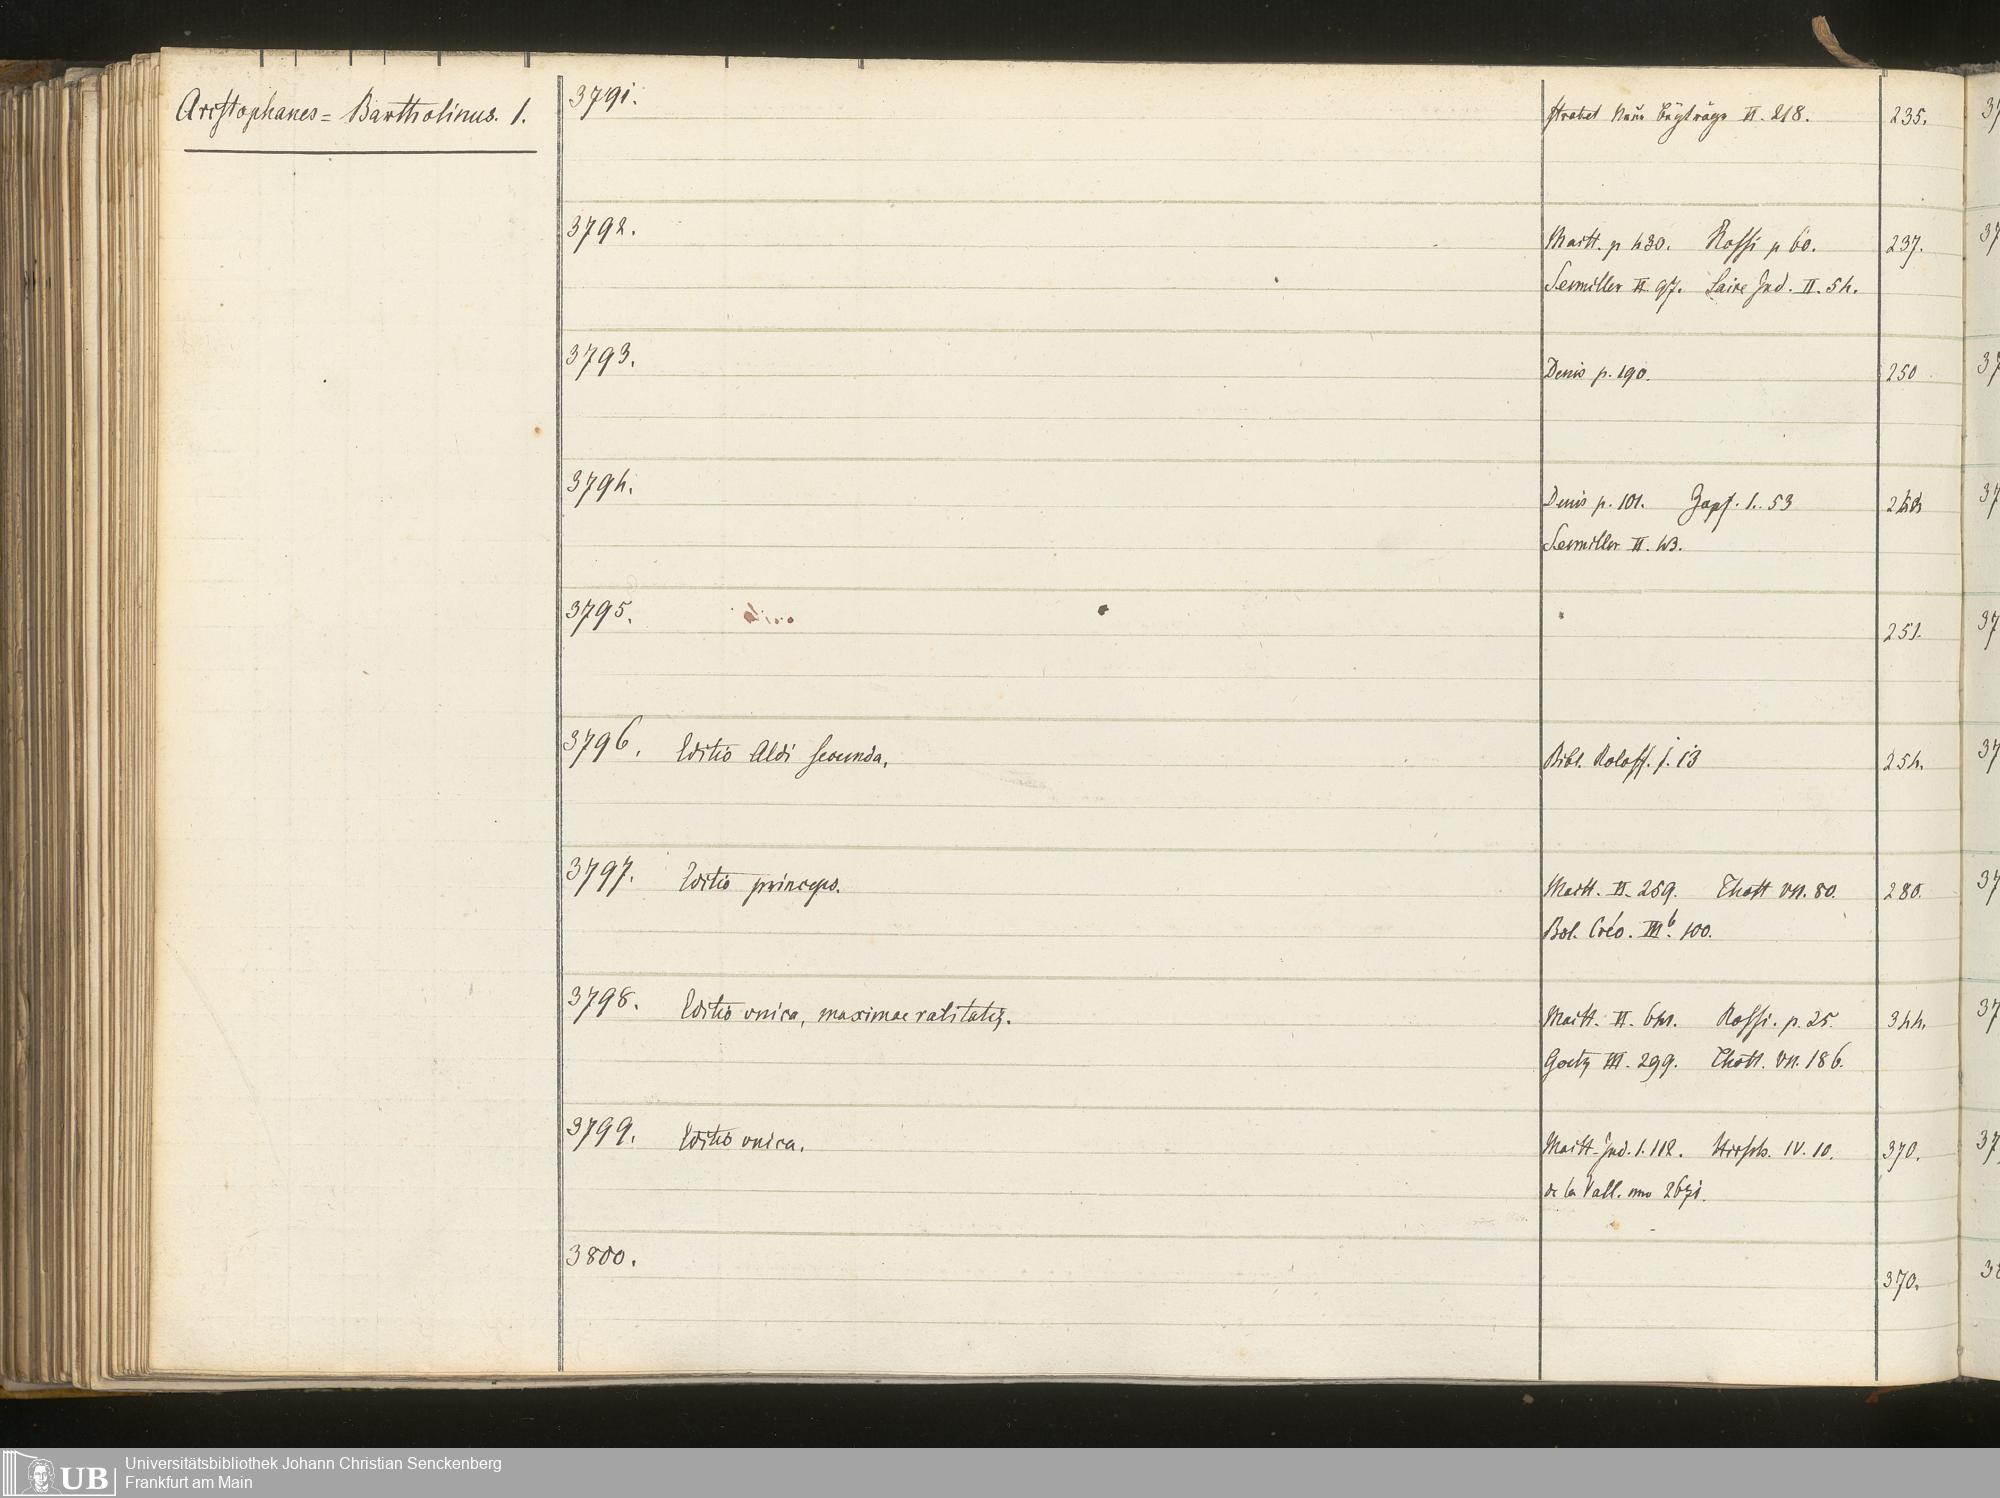 Aristophanes = Bartholinus. 1.
3791.
Strobel Neue Beyträge II. 218.
235.
3792.
Maitt. p 430. Rossi p 60.
237.
Seemiller II. 97. Laire Ind. II. 54.
3793.
Denis p. 190.
250
3794.
Denis p. 101. Zapf. 1. 53
Seemiller II. 43.
3795.
251.
3796. Editio Aldi secunda.
Bibl. Roloff. j. 13
254.
3797. Editio princeps.
Maitt. II. 259. Thott VII. 80.
280.
Bibl. III b. 100.
3798. Editio vnica, maximae raritatis.
Maitt. II. Rossi. p. 25.
344.
Goetz III. 299. Thott. VII. 186.
3799. Editio vnica.
Maitt. Ind. 1. 112. Hirsch. IV. 10.
370.
de la Vall. nro
3800.
370.
Universitätsbibliothek Johann Christian Senckenberg
UB Frankfurt am Main